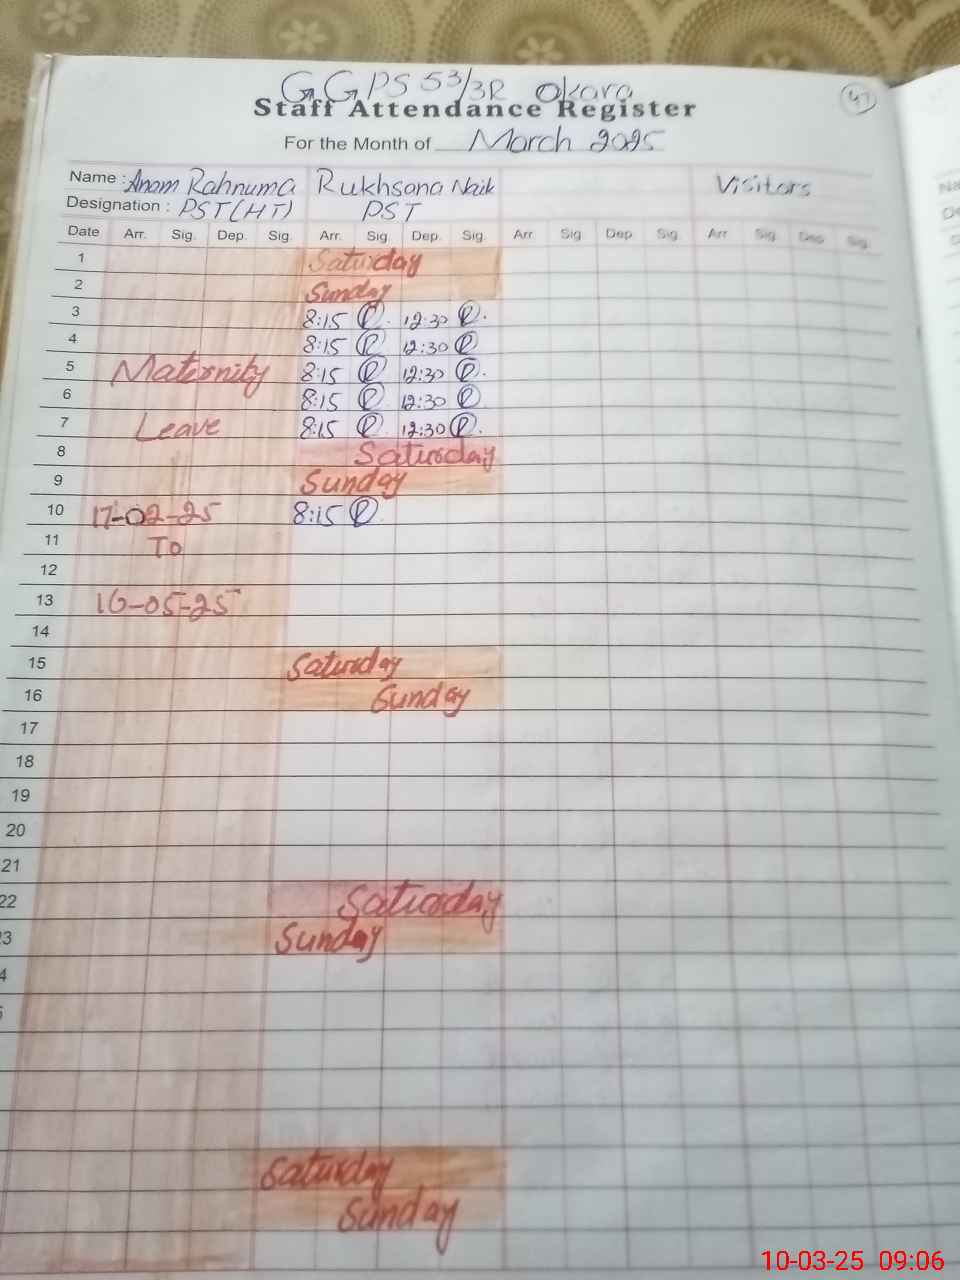 GGPS 53/3R Okara
47
Staff Attendance Register
For the Month of March 2025
Name : Anam Rahnuma Rukhsana Naik Visitors
Designation : PST(HT) PST
Date Arr. Sig. Dep. Sig. Arr. Sig. Dep. Sig. Arr Sig Dep Sig. Arr Sig. Dep Sig.
1 Saturday
2 Sunday
3 8:15 12:30
4 8:15 12:30
5 Maternity 8:15 12:30
6 8:15 12:30
7 Leave 8:15 12:30
8 Saturday
9 Sunday
10 17-02-25 8:15
11 To
12
13 16-05-25
14
15 Saturday
16 Sunday
17
18
19
20
21
22 Saturday
23 Sunday
4
Saturday
Sunday
10-03-25 09:06